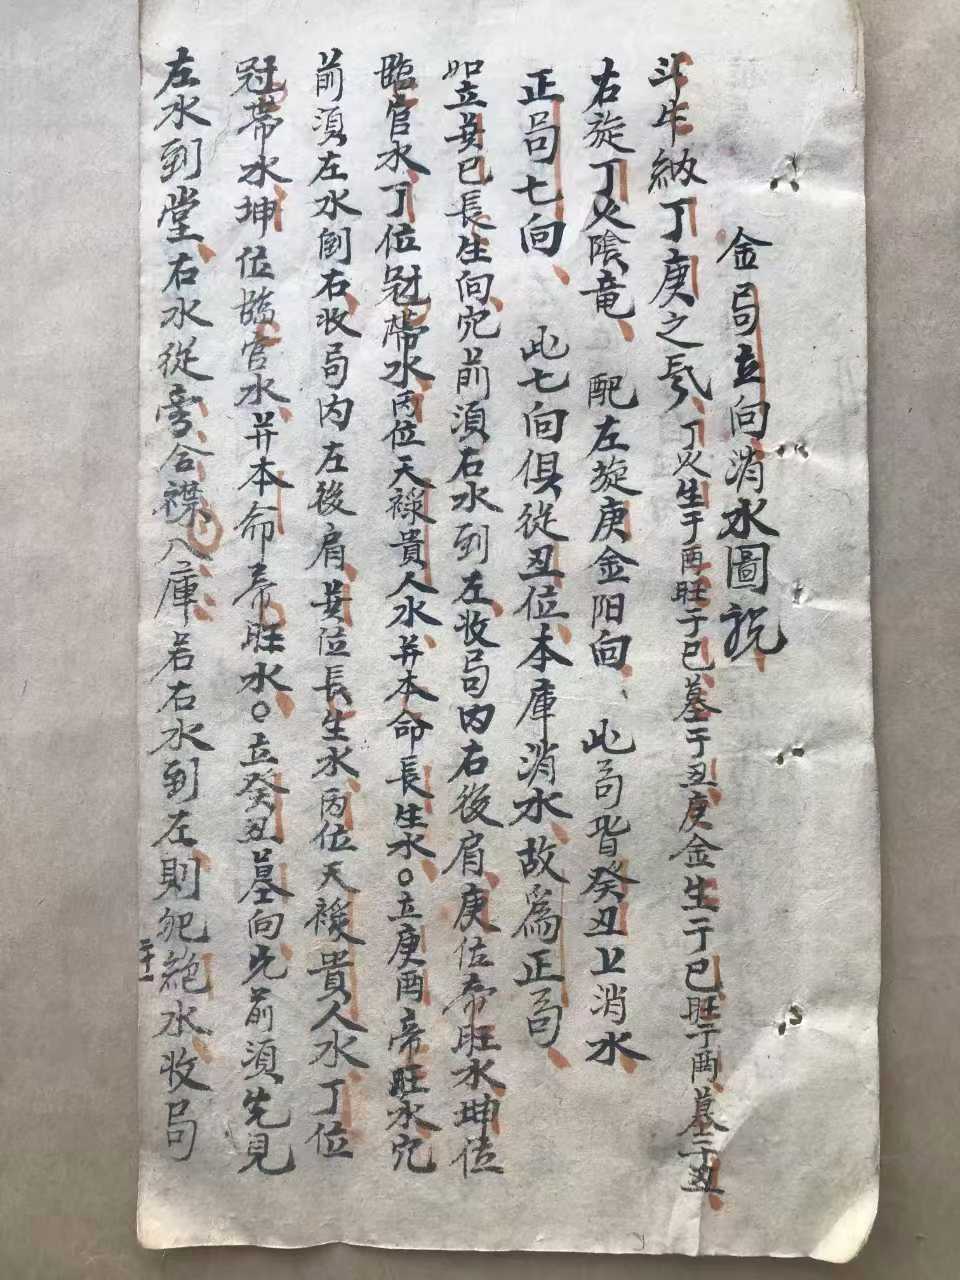 金局立向消水圖説
斗牛納丁庚之氣、丁火生于酉旺于巳墓于丑庚金生于巳旺于酉墓于丑
右旋丁火陰竜、配左旋庚金阳向、此局皆癸丑上消水
正局七向、此七向俱從丑位本庫消水故爲正局、
如立巽巳長生向穴前須右水到左收局内右後肩庚位帝旺水坤位
臨官水丁位冠帶水丙位天祿貴人水并本命長生水。立庚酉帝旺水穴
前須左水倒右收局内左後肩巽位長生水丙位天祿貴人水丁位
冠帶水坤位臨官水并本命帝旺水。立癸丑墓向穴前須先見
左水到堂右水從旁合襟入庫若右水到左則犯絕水收局
二十一